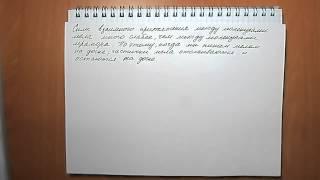 Силы взаимного притяжения между молекулами
мела много слабее, чем между молекулами
мрамора. Поэтому, когда мы пишем мелом
на доске, частички мела откалываются и
остаются на доске.